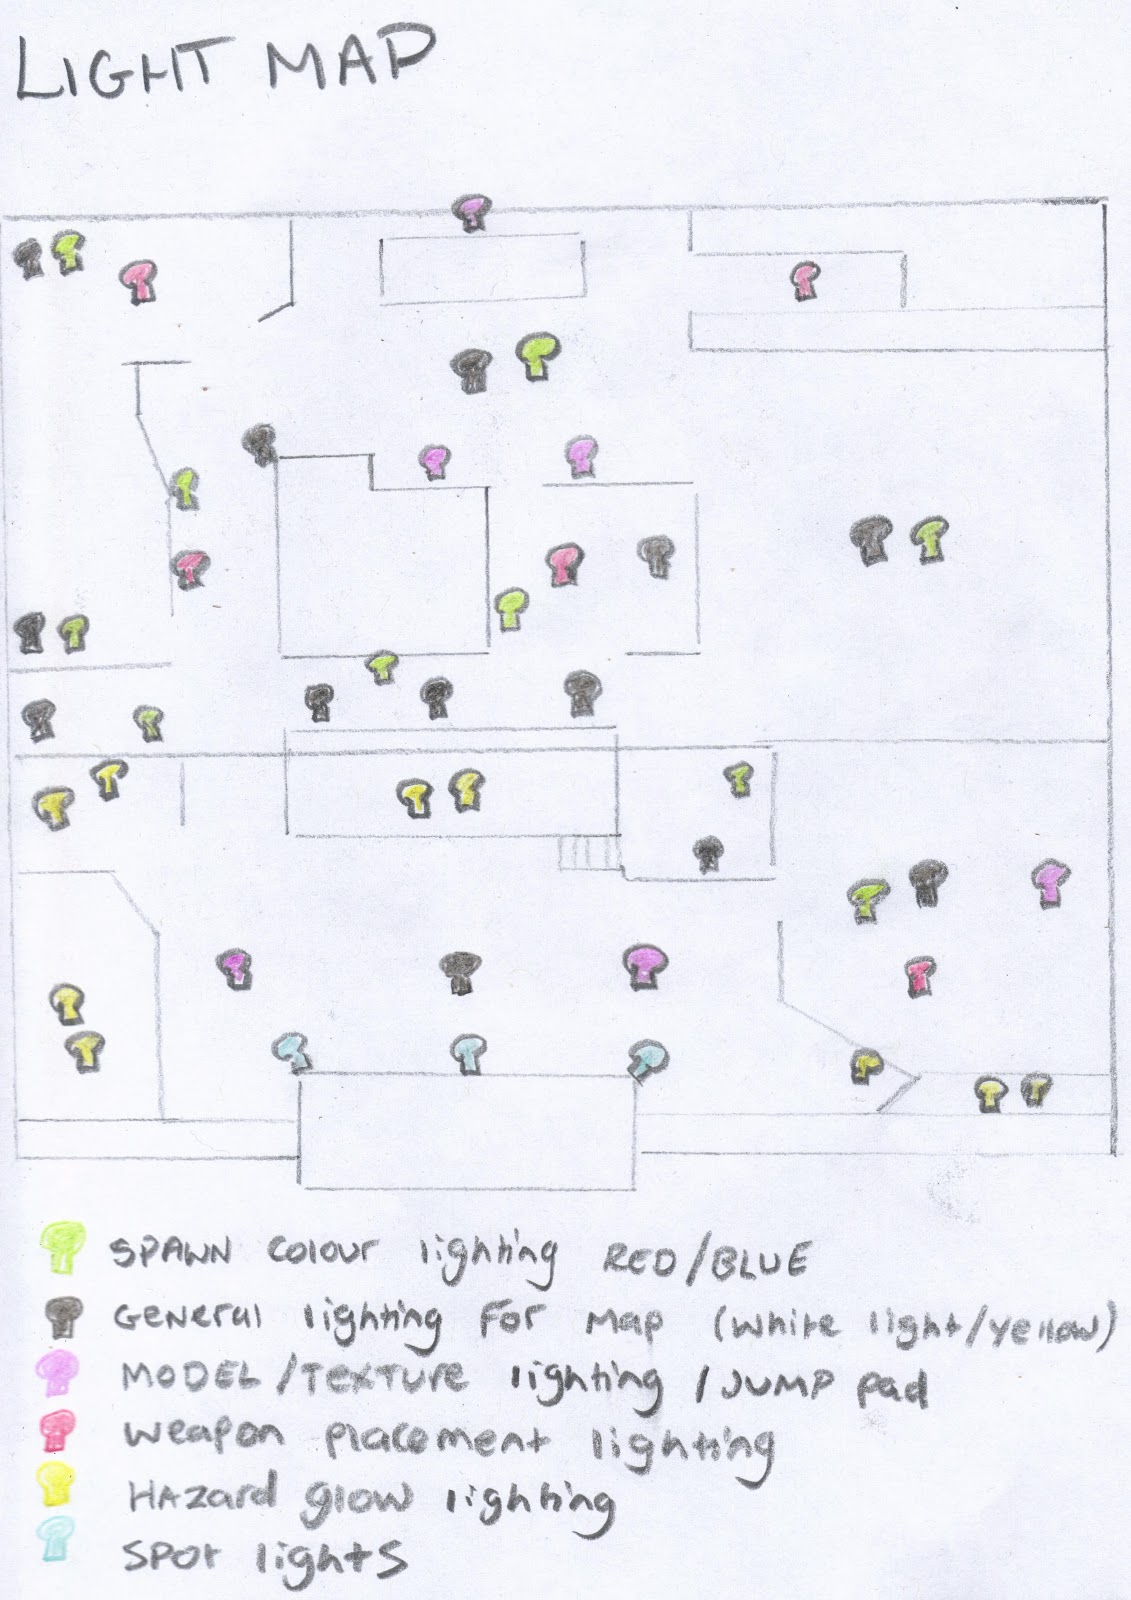 LIGHT MAP
SPAWN COLOUR lighting RED/BLUE
GENERAL lighting FOR MAP (White light/Yellow)
MODEL/TEXTURE lighting /JUMP pad
Weapon placement lighting
HAZard glow lighting
SPOT lights